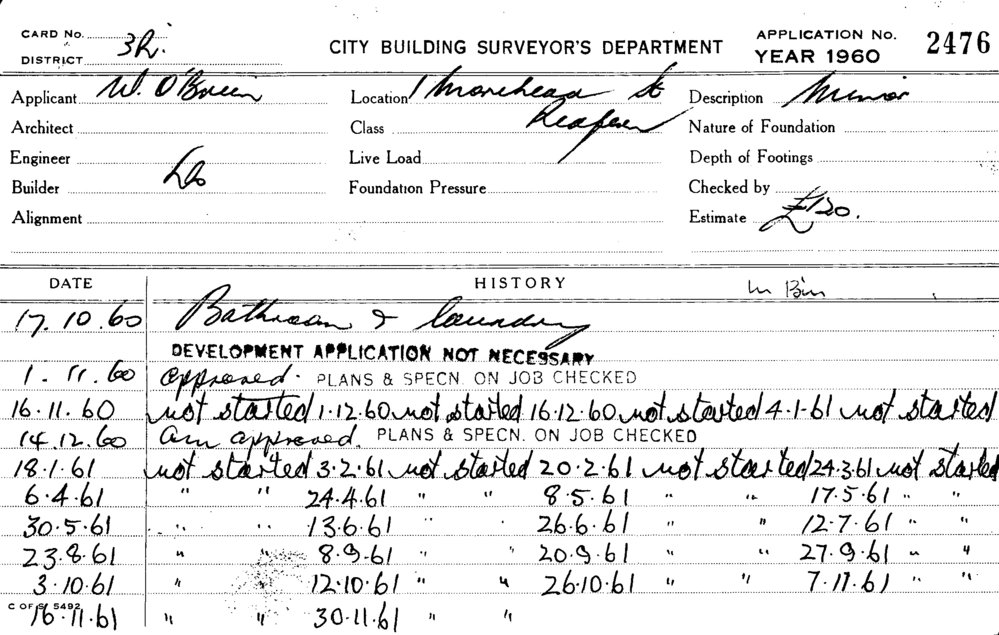 CARD No.
DISTRICT 3R.
CITY BUILDING SURVEYOR'S DEPARTMENT
APPLICATION No. 2476
YEAR 1960
Applicant W. O'Brien Location 1 Morehead St Description Minor
Architect Class Redfern Nature of Foundation
Engineer Live Load Depth of Footings
Builder Do Foundation Pressure Checked by
Alignment Estimate £120.
DATE HISTORY In Bin
17.10.60 Bathroom & Laundry
DEVELOPMENT APPLICATION NOT NECESSARY
1.11.60 approved. PLANS & SPECN. ON JOB CHECKED
16.11.60 not started 1.12.60 not started 16.12.60 not started 4.1.61 not started
14.12.60 am approved. PLANS & SPECN. ON JOB CHECKED
18.1.61 not started 3.2.61 not started 20.2.61 not started 24.3.61 not started
6.4.61 " " 24.4.61 " " 8.5.61 " " 17.5.61 " "
30.5.61 " " 13.6.61 " " 26.6.61 " " 12.7.61 " "
23.8.61 " " 8.9.61 " " 20.9.61 " " 27.9.61 " "
3.10.61 " " 12.10.61 " " 26.10.61 " " 7.11.61 " "
C OF S. 5492
16.11.61 " " 30.11.61 " "